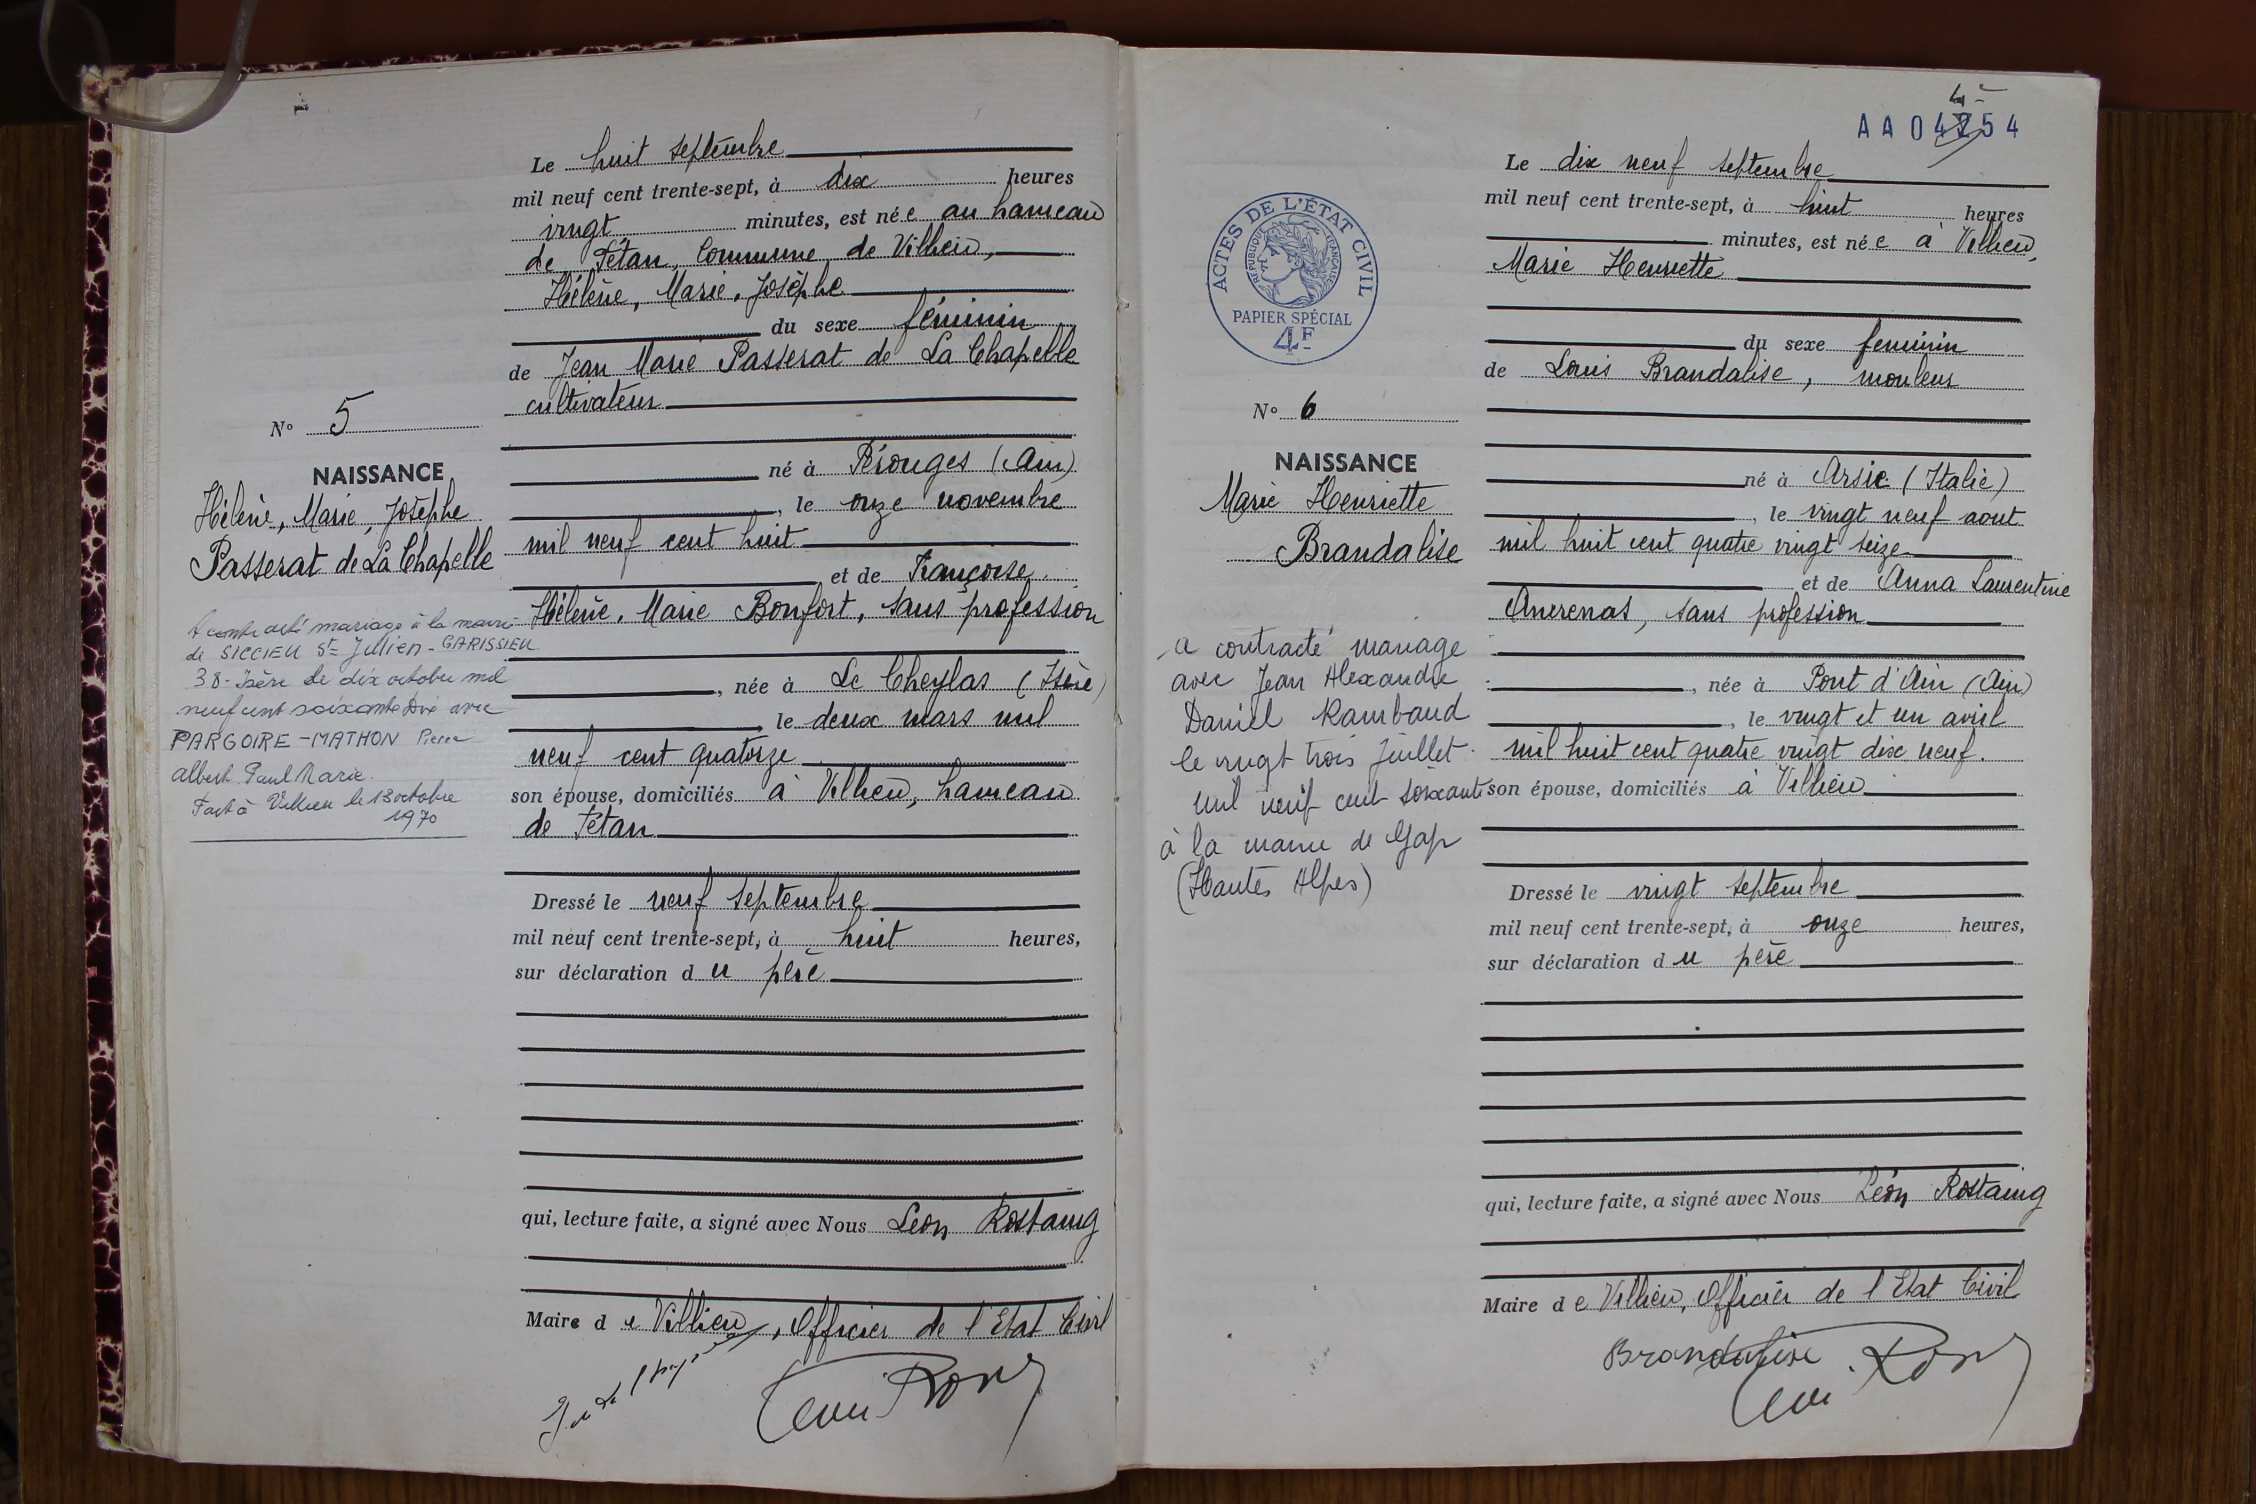 Le huit septembre
mil neuf cent trente-sept, à dix heures
vingt minutes, est née au hameau
de Fétan, Commune de Villieu,
Hélène, Marie, Josèphe
du sexe féminin
de Jean Marie Passerat de La Chapelle
cultivateur
N° 5
NAISSANCE
Hélène, Marie, Josèphe
Passerat de La Chapelle
né à Pérouges (Ain)
, le onze novembre
mil neuf cent huit
et de Françoise,
Hélène, Marie Bonfort, sans profession
A contracté mariage à la mairie
de SICCIEU St Julien - CARISSIEU
38 - Isère le dix octobre mil
neuf cent soixante dix avec
PARGOIRE - MATHON Pierre
Albert Paul Marie.
Fait à Villieu le 13 octobre
1970
, née à Le Cheylas (Isère)
le deux mars mil
neuf cent quatorze
son épouse, domiciliés à Villieu, hameau
de Fétan
Dressé le neuf septembre
mil neuf cent trente-sept, à huit heures,
sur déclaration du père
qui, lecture faite, a signé avec Nous Léon Rostaing
Maire de Villieu, Officier de l'Etat Civil
AA04254
Le dix neuf septembre
mil neuf cent trente-sept, à huit heures
minutes, est née à Villieu,
Marie Henriette
du sexe feminin
de Louis Brandalise, mouleur
ACTES DE L'ÉTAT CIVIL
RÉPUBLIQUE FRANÇAISE
PAPIER SPÉCIAL
4F
N° 6
NAISSANCE
Marie Henriette
Brandalise
né à Arsie (Italie)
, le vingt neuf aout
mil huit cent quatre vingt seize
et de Anna Laurentine
sans profession
a contracté mariage
avec Jean Alexandre
Daniel Rambaud
le vingt trois Juillet
mil neuf cent soixante
à la mairie de Gap
(Hautes Alpes)
, née à Pont d'Ain (Ain)
, le vingt et un avril
mil huit cent quatre vingt dix neuf.
son épouse, domiciliés à Villieu
Dressé le vingt septembre
mil neuf cent trente-sept, à onze heures,
sur déclaration du père
qui, lecture faite, a signé avec Nous Léon Rostaing
Maire de Villieu, Officier de l'Etat Civil
Brandalise